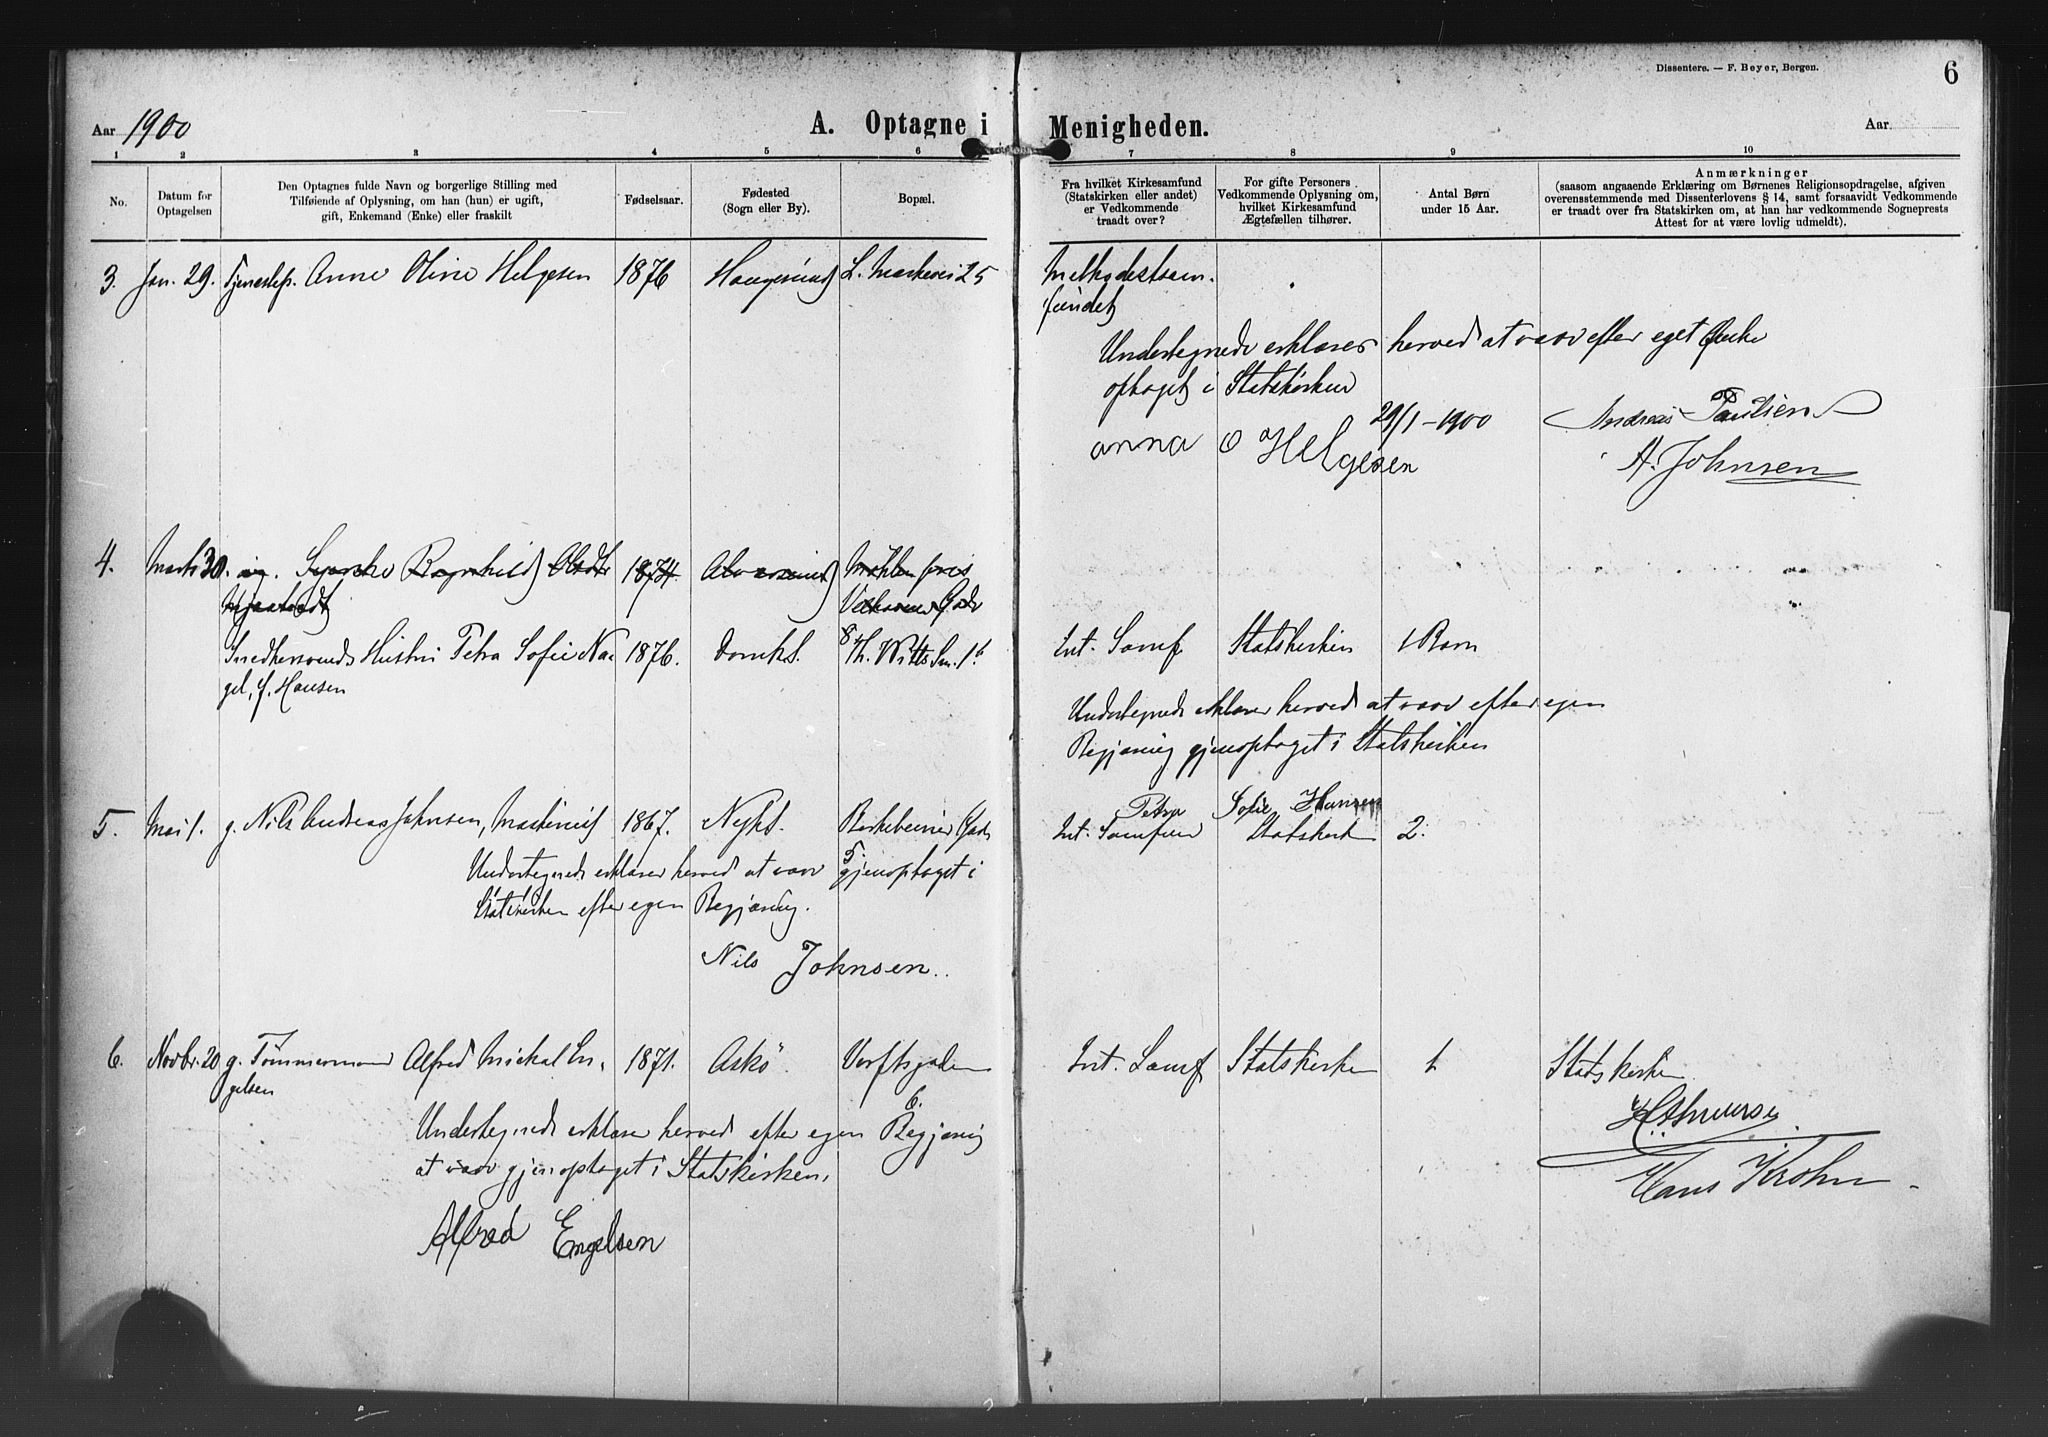 Dissentere. — F. Beyer, Bergen.
6
Aar 1900
A. Optagne i Menigheden.
Aar
1 2 3 4 5 6 7 8 9 10
No.
Datum for
Optagelsen
Den Optagnes fulde Navn og borgerlige Stilling med
Tilføiende af Oplysning, om han (hun) er ugift,
gift, Enkemand (Enke) eller fraskilt
Fødselsaar.
Fødested
(Sogn eller By).
Bopæl.
Fra hvilket Kirkesamfund
(Statskirken eller andet)
er Vedkommende
traadt over?
For gifte Personers
Vedkommende Oplysning om,
hvilket Kirkesamfund
Ægtefællen tilhører.
Antal Børn
under 15 Aar.
Anmærkninger
(saasom angaaende Erklæring om Børnenes Religionsopdragelse, afgiven
overensstemmende med Dissenterlovens § 14, samt forsaavidt Vedkommende
er traadt over fra Statskirken om, at han har vedkommende Sogneprests
Attest for at være lovlig udmeldt).
3. Jan. 29. Tjenestep. Anne Oline Helgesen 1876 Haugesund L. Markevei 25 Methodistsam-
fundet
Undertegnede erklærer herved at være efter eget Ønske
optaget i Statskirken
29/1 - 1900
Anna O Helgesen
Andreas Paulsen
A. Johnsen
4. Marts 30. Ragnhild 1874 Møhlenpris
Snedkersvends Hustru Petra Sofie Na- 1876. Domks. Th. Witts Sm. 1b Int. Samf. Statskirken 1 Barn
gel, f. Hansen
Undertegnede erklærer herved at være efter egen
Begjæring gjenoptaget i Statskirken
Petra Sofie Hansen
5. Mai 1. g. Nils Andreas Johnsen, Maskinist 1867. Nyks. Birkebeiner Gad. Int. Samfund Statskirk 2.
5.
Undertegnede erklærer herved at være gjenoptaget i
Statskirken efter egen Begjæring.
Nils Johnsen.
6. Novbr. 20 g. Tømmermand Alfred Mickal En- 1871. Askö. Verftsgaden Int. Samf Statskirken 1 Statskirken
gelsen
6.
Undertegnede erklærer herved efter egen Begjæring
at være gjenoptaget i Statskirken.
Alfred Engelsen
Hans Krohn